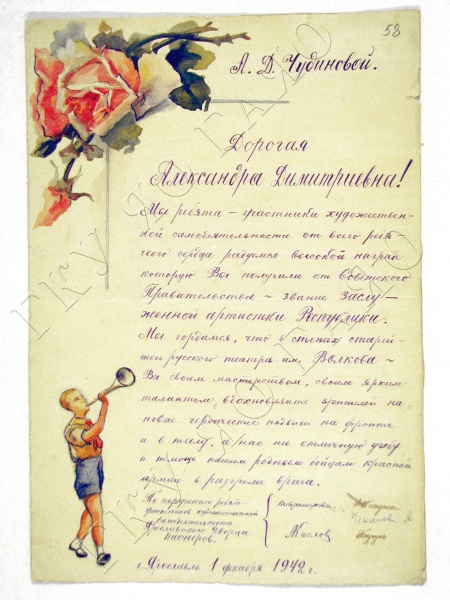 58
А. Д. Чудиновой.
Дорогая
Александра Димитриевна!
Мы ребята - участники художествен-
ной самодеятельности от всего ребя-
чьего города радуемся высокой награде
которую Вы получили от Советского
Правительства - звание Заслу-
женной артистки Республики.
Мы гордимся, что в стенах старей-
шего русского театра им. Волкова -
Вы своим мастерством, своим ярким
талантом, вдохновляете зрителей на
новые героические подвиги на фронте
и в тылу, а нас на отличную учебу
и помощь нашим родным бойцам красной
армии в разгроме врага.
По поручению ребят
участников художественной
самодеятельности
Ярославского Дворца
пионеров.
Маслов
г. Ярославль 1 декабря 1942 г.
ГКУ ЯО ГАЯО